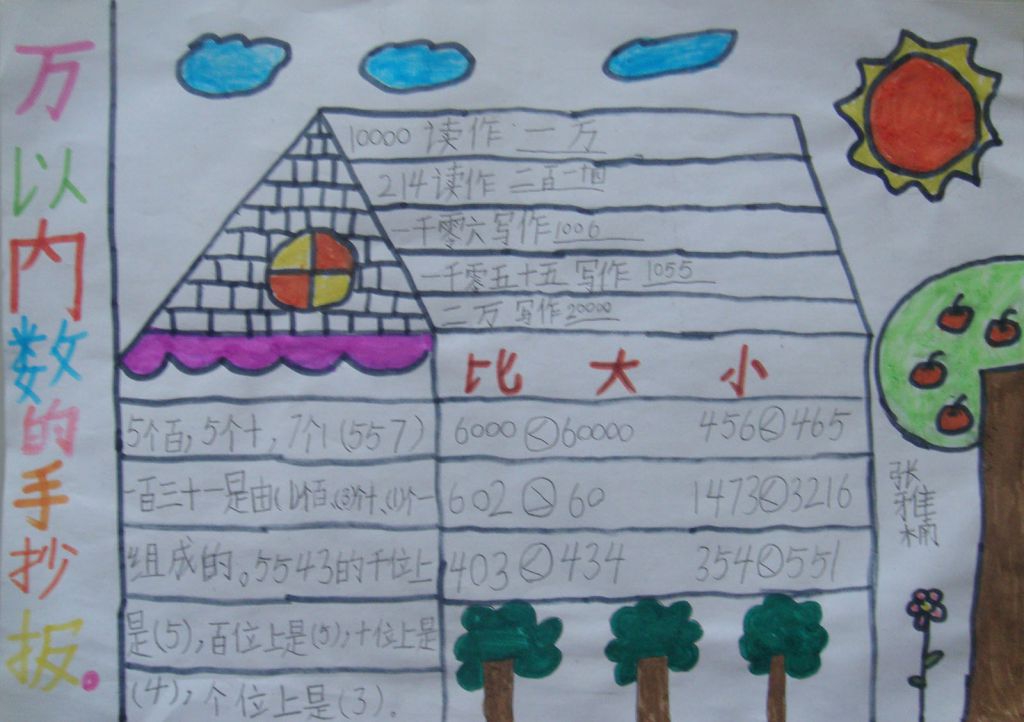 万以内数的手抄报。
10000 读作 一万
214 读作 二百一十四
一千零六 写作 1006
一千零五十五 写作 1055
二万 写作 20000
5个百,5个十,7个1(557)
一百三十一是由(1)个百、(3)个十、(1)个一
组成的。5543的千位上
是(5),百位上是(5),十位上是
(4),个位上是(3).
比 大 小
6000 < 60000 456 < 465
602 > 60 1473 < 3216
403 < 434 354 < 551
张雅楠